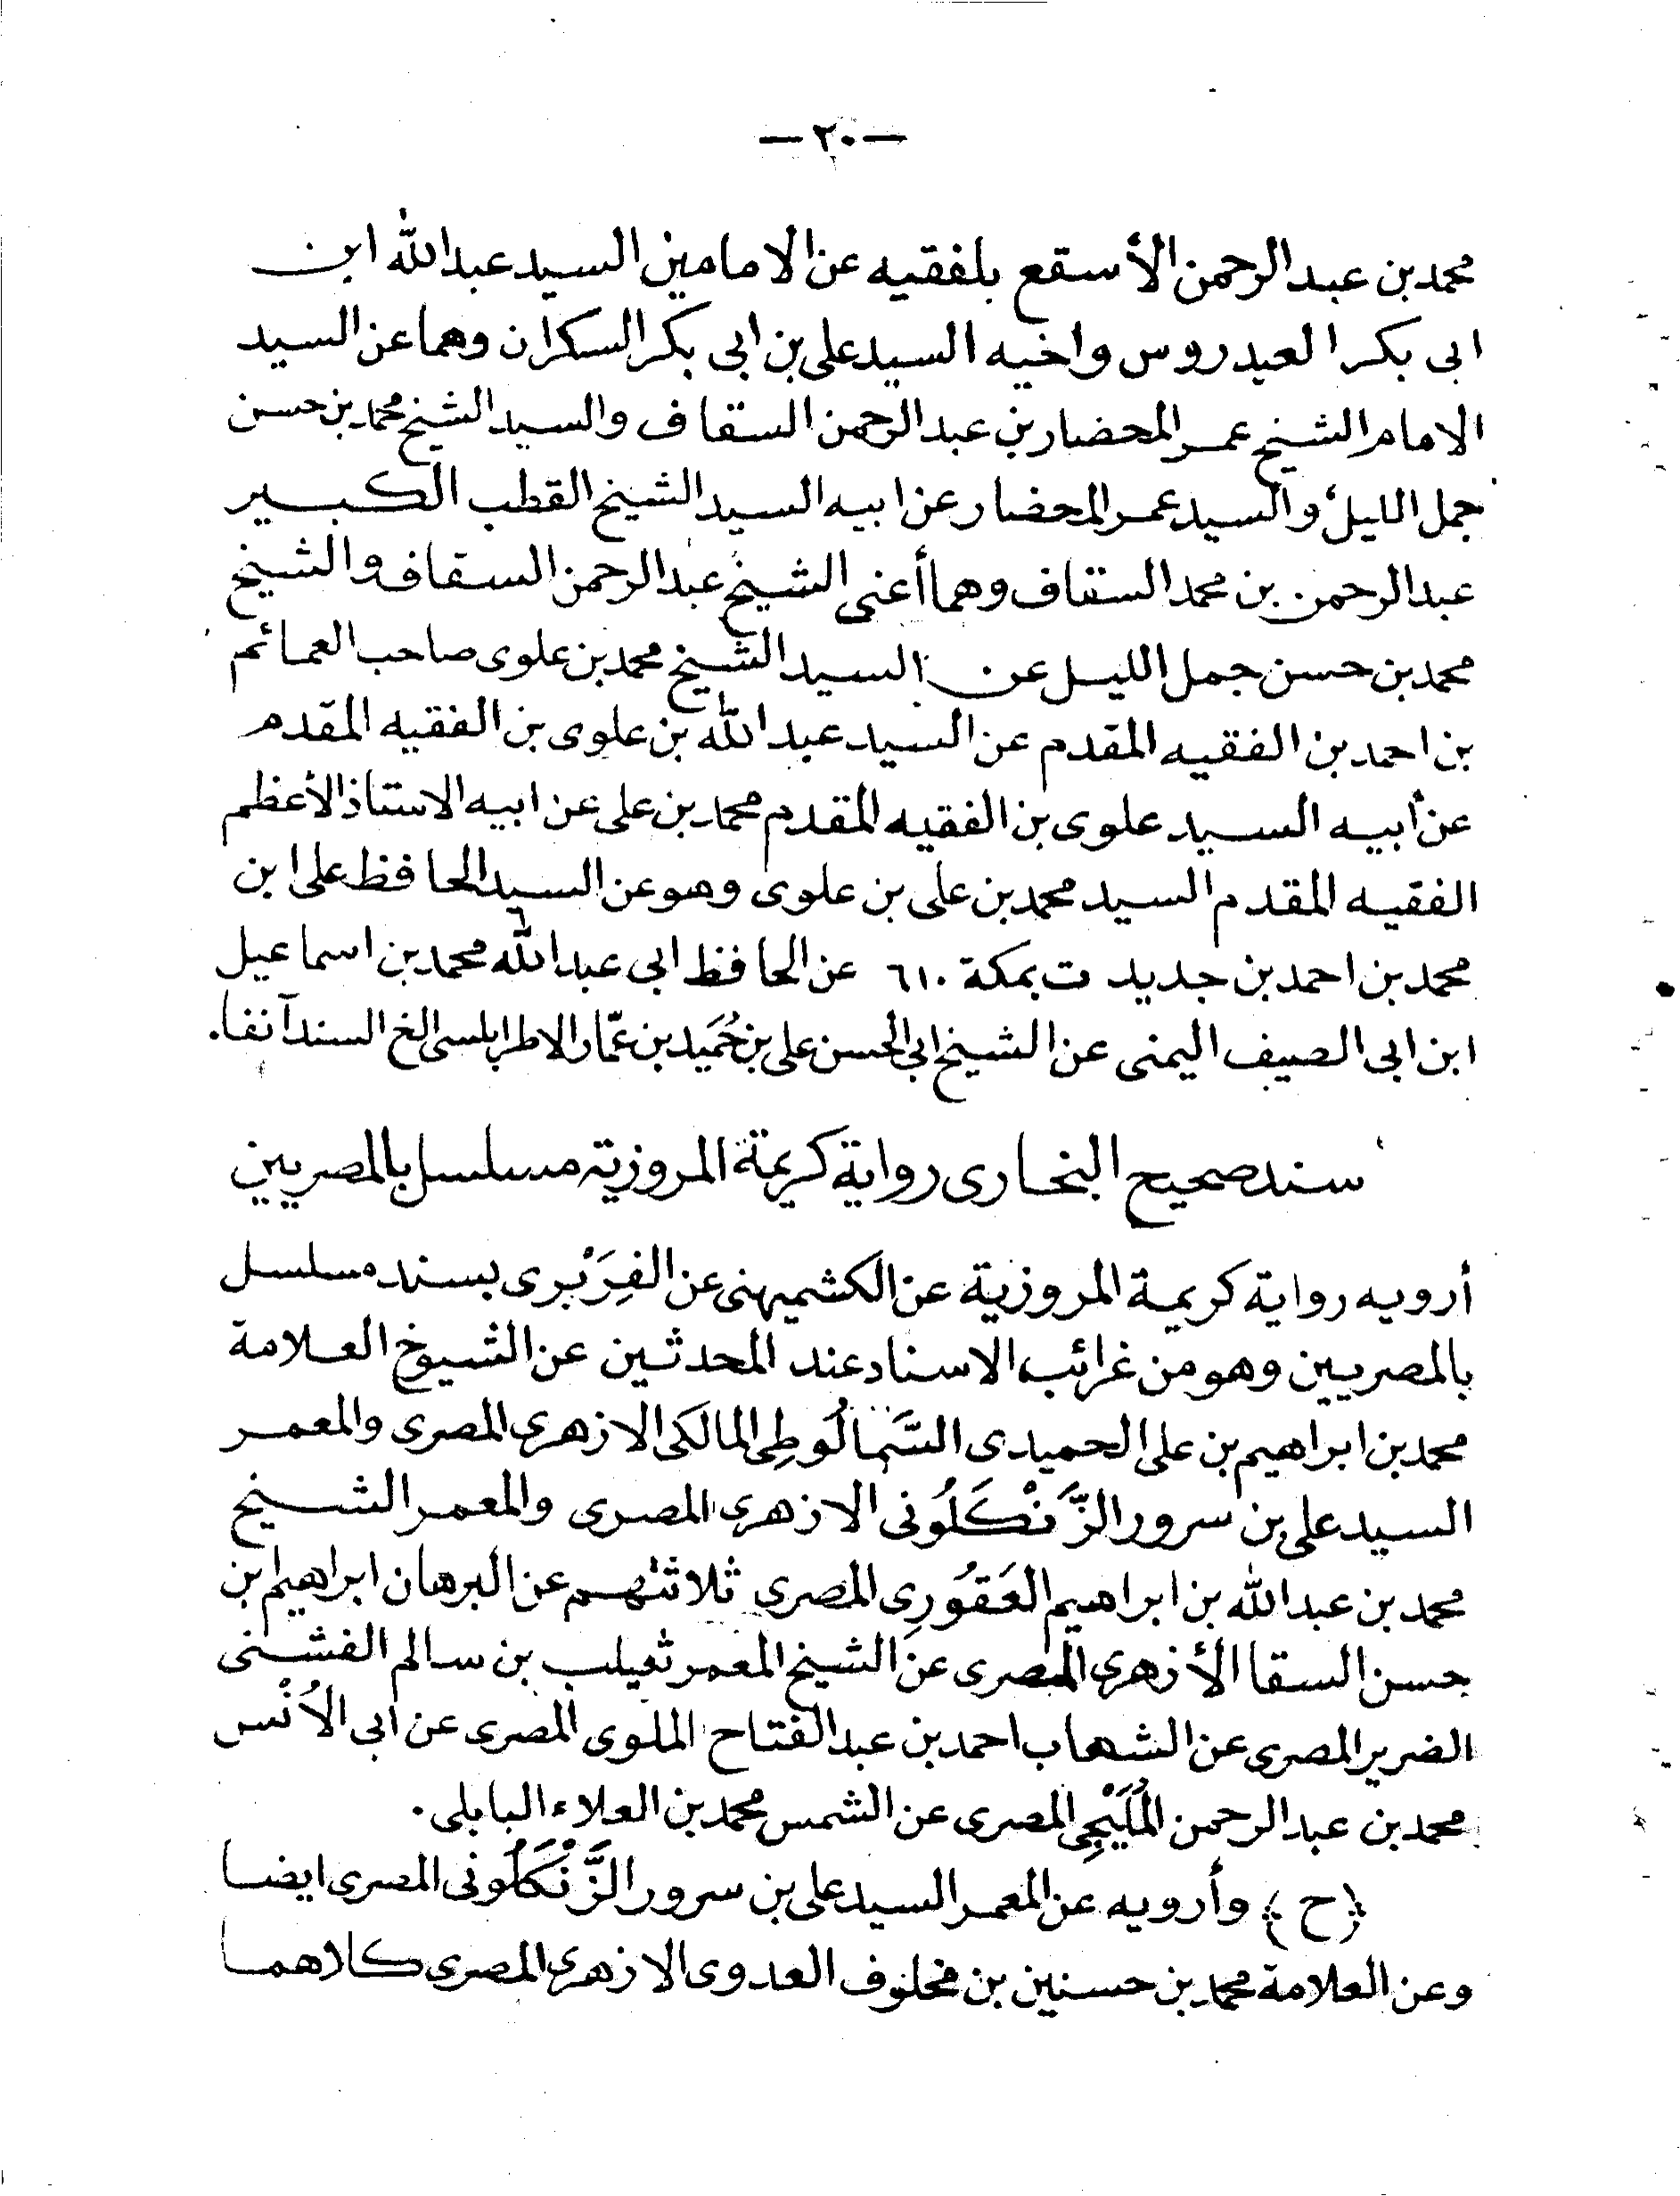 — ٢٠ —
محمد بن عبد الرحمن الأسقع بلفقيه عن الامامين السيد عبد الله ابن
ابى بكر العيدروس واخيه السيد على بن ابى بكر السكران وهما عن السيد
الامام الشيخ عمر المحضار بن عبد الرحمن السقاف والسيد الشيخ محمد بن حسن
جمل الليل، والسيد عمر المحضار عن ابيه السيد الشيخ القطب الكبير
عبد الرحمن بن محمد السقاف وهما أعنى الشيخ عبد الرحمن السقاف والشيخ
محمد بن حسن جمل الليل عن السيد الشيخ محمد بن علوى صاحب العمائم
بن احمد بن الفقيه المقدم عن السيد عبد الله بن علوى بن الفقيه المقدم
عن أبيه السيد علوى بن الفقيه المقدم محمد بن على عن ابيه الاستاذ الأعظم
الفقيه المقدم السيد محمد بن على بن علوى وهو عن السيد الحافظ على ابن
محمد بن احمد بن جديد ت بمكة ٦١٠ عن الحافظ ابى عبد الله محمد بن اسماعيل
ابن ابى الصيف اليمنى عن الشيخ ابى الحسن على بن حُمَيد بن عمّار الاطرابلسى الخ السند آنفا.
سند صحيح البخارى رواية كريمة المروزية مسلسل بالمصريين
أرويه رواية كريمة المروزية عن الكشميهنى عن الفِرَبْرى بسند مسلسل
بالمصريين وهو من غرائب الاسناد عند المحدثين عن الشيوخ العلامة
محمد بن ابراهيم بن على الحميدى السَّمالُوطِى المالكى الازهرى المصرى والمعمر
السيد على بن سرور الزَّنْكَلُونى الازهرى المصرى والمعمر الشيخ
محمد بن عبد الله بن ابراهيم العَقُورِى المصرى ثلاثتهم عن البرهان ابراهيم ابن
حسن السقا الأزهرى المصرى عن الشيخ المعمر ثعيلب بن سالم الفشنى
الضرير المصرى عن الشهاب احمد بن عبد الفتاح الملوى المصرى عن ابى الأُنْس
محمد بن عبد الرحمن المُلَيْجِى المصرى عن الشمس محمد بن العلاء البابلى.
﴿ح﴾ وأرويه عن المعمر السيد على بن سرور الزَّنْكَلُونى المصرى ايضا
وعن العلامة محمد بن حسنين بن مخلوف العدوى الازهرى المصرى كلاهما